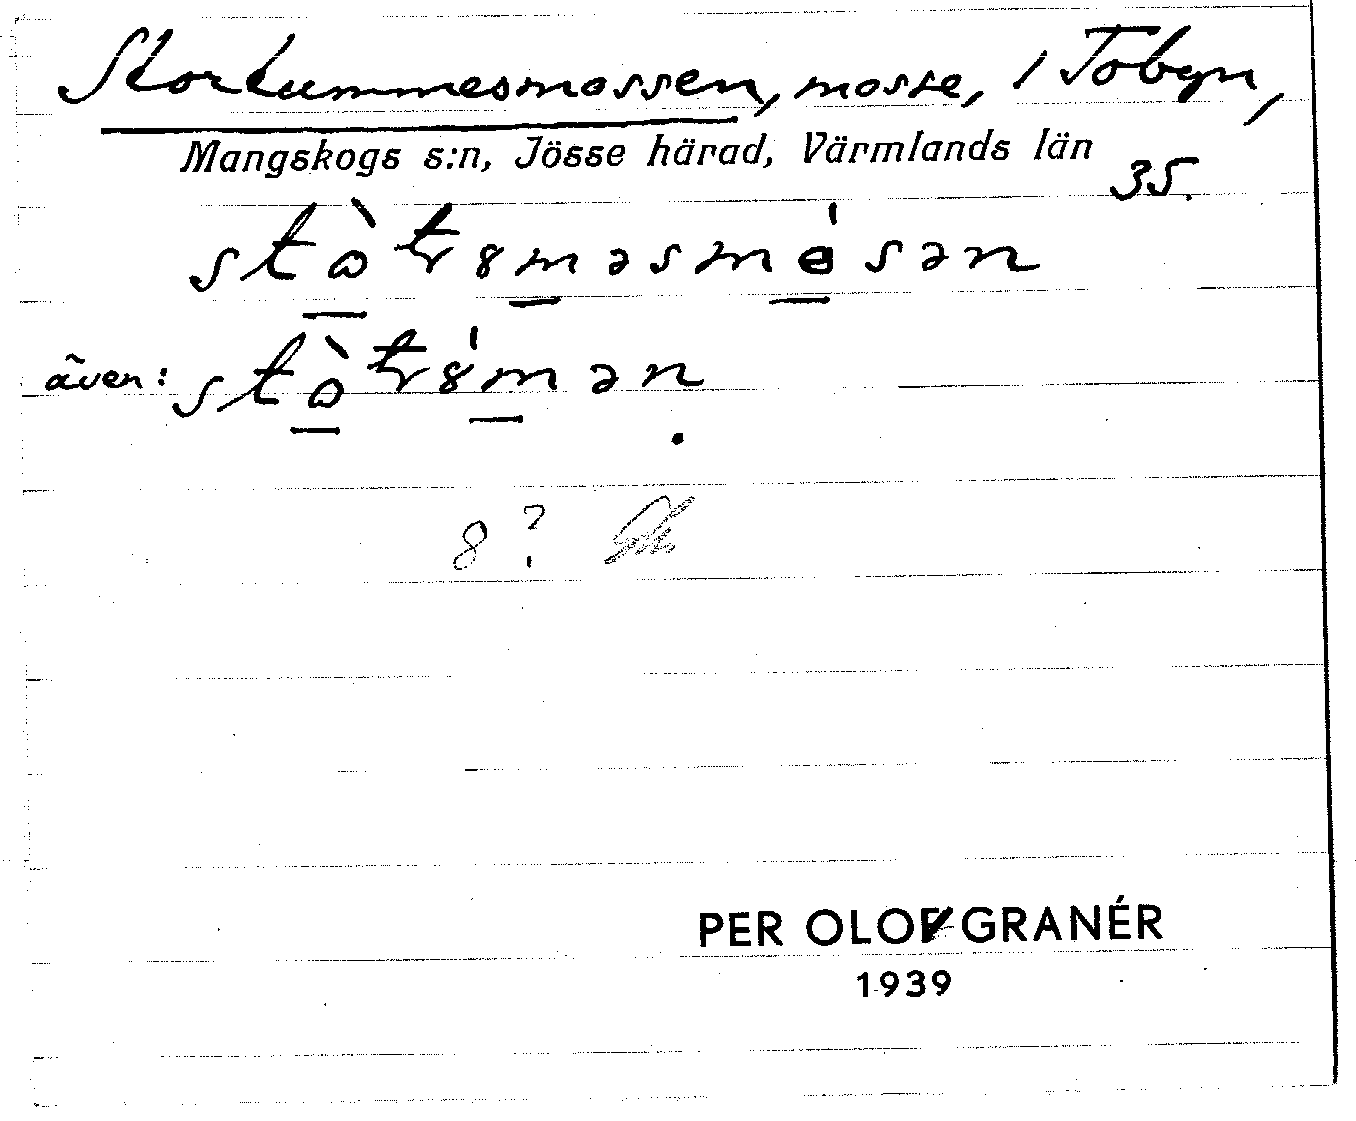 Stortummesmossen, mosse, i Tobyn,
Mangskogs s:n, Jösse härad, Värmlands län
35.
stò̠tr8m̠əsmé̠sən
även: stò̠tr8́m̠ən
.
8 ?
PER OLOV GRANÉR
1939